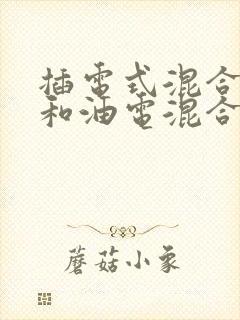 插電式混合
和油電混合
蘑菇小象